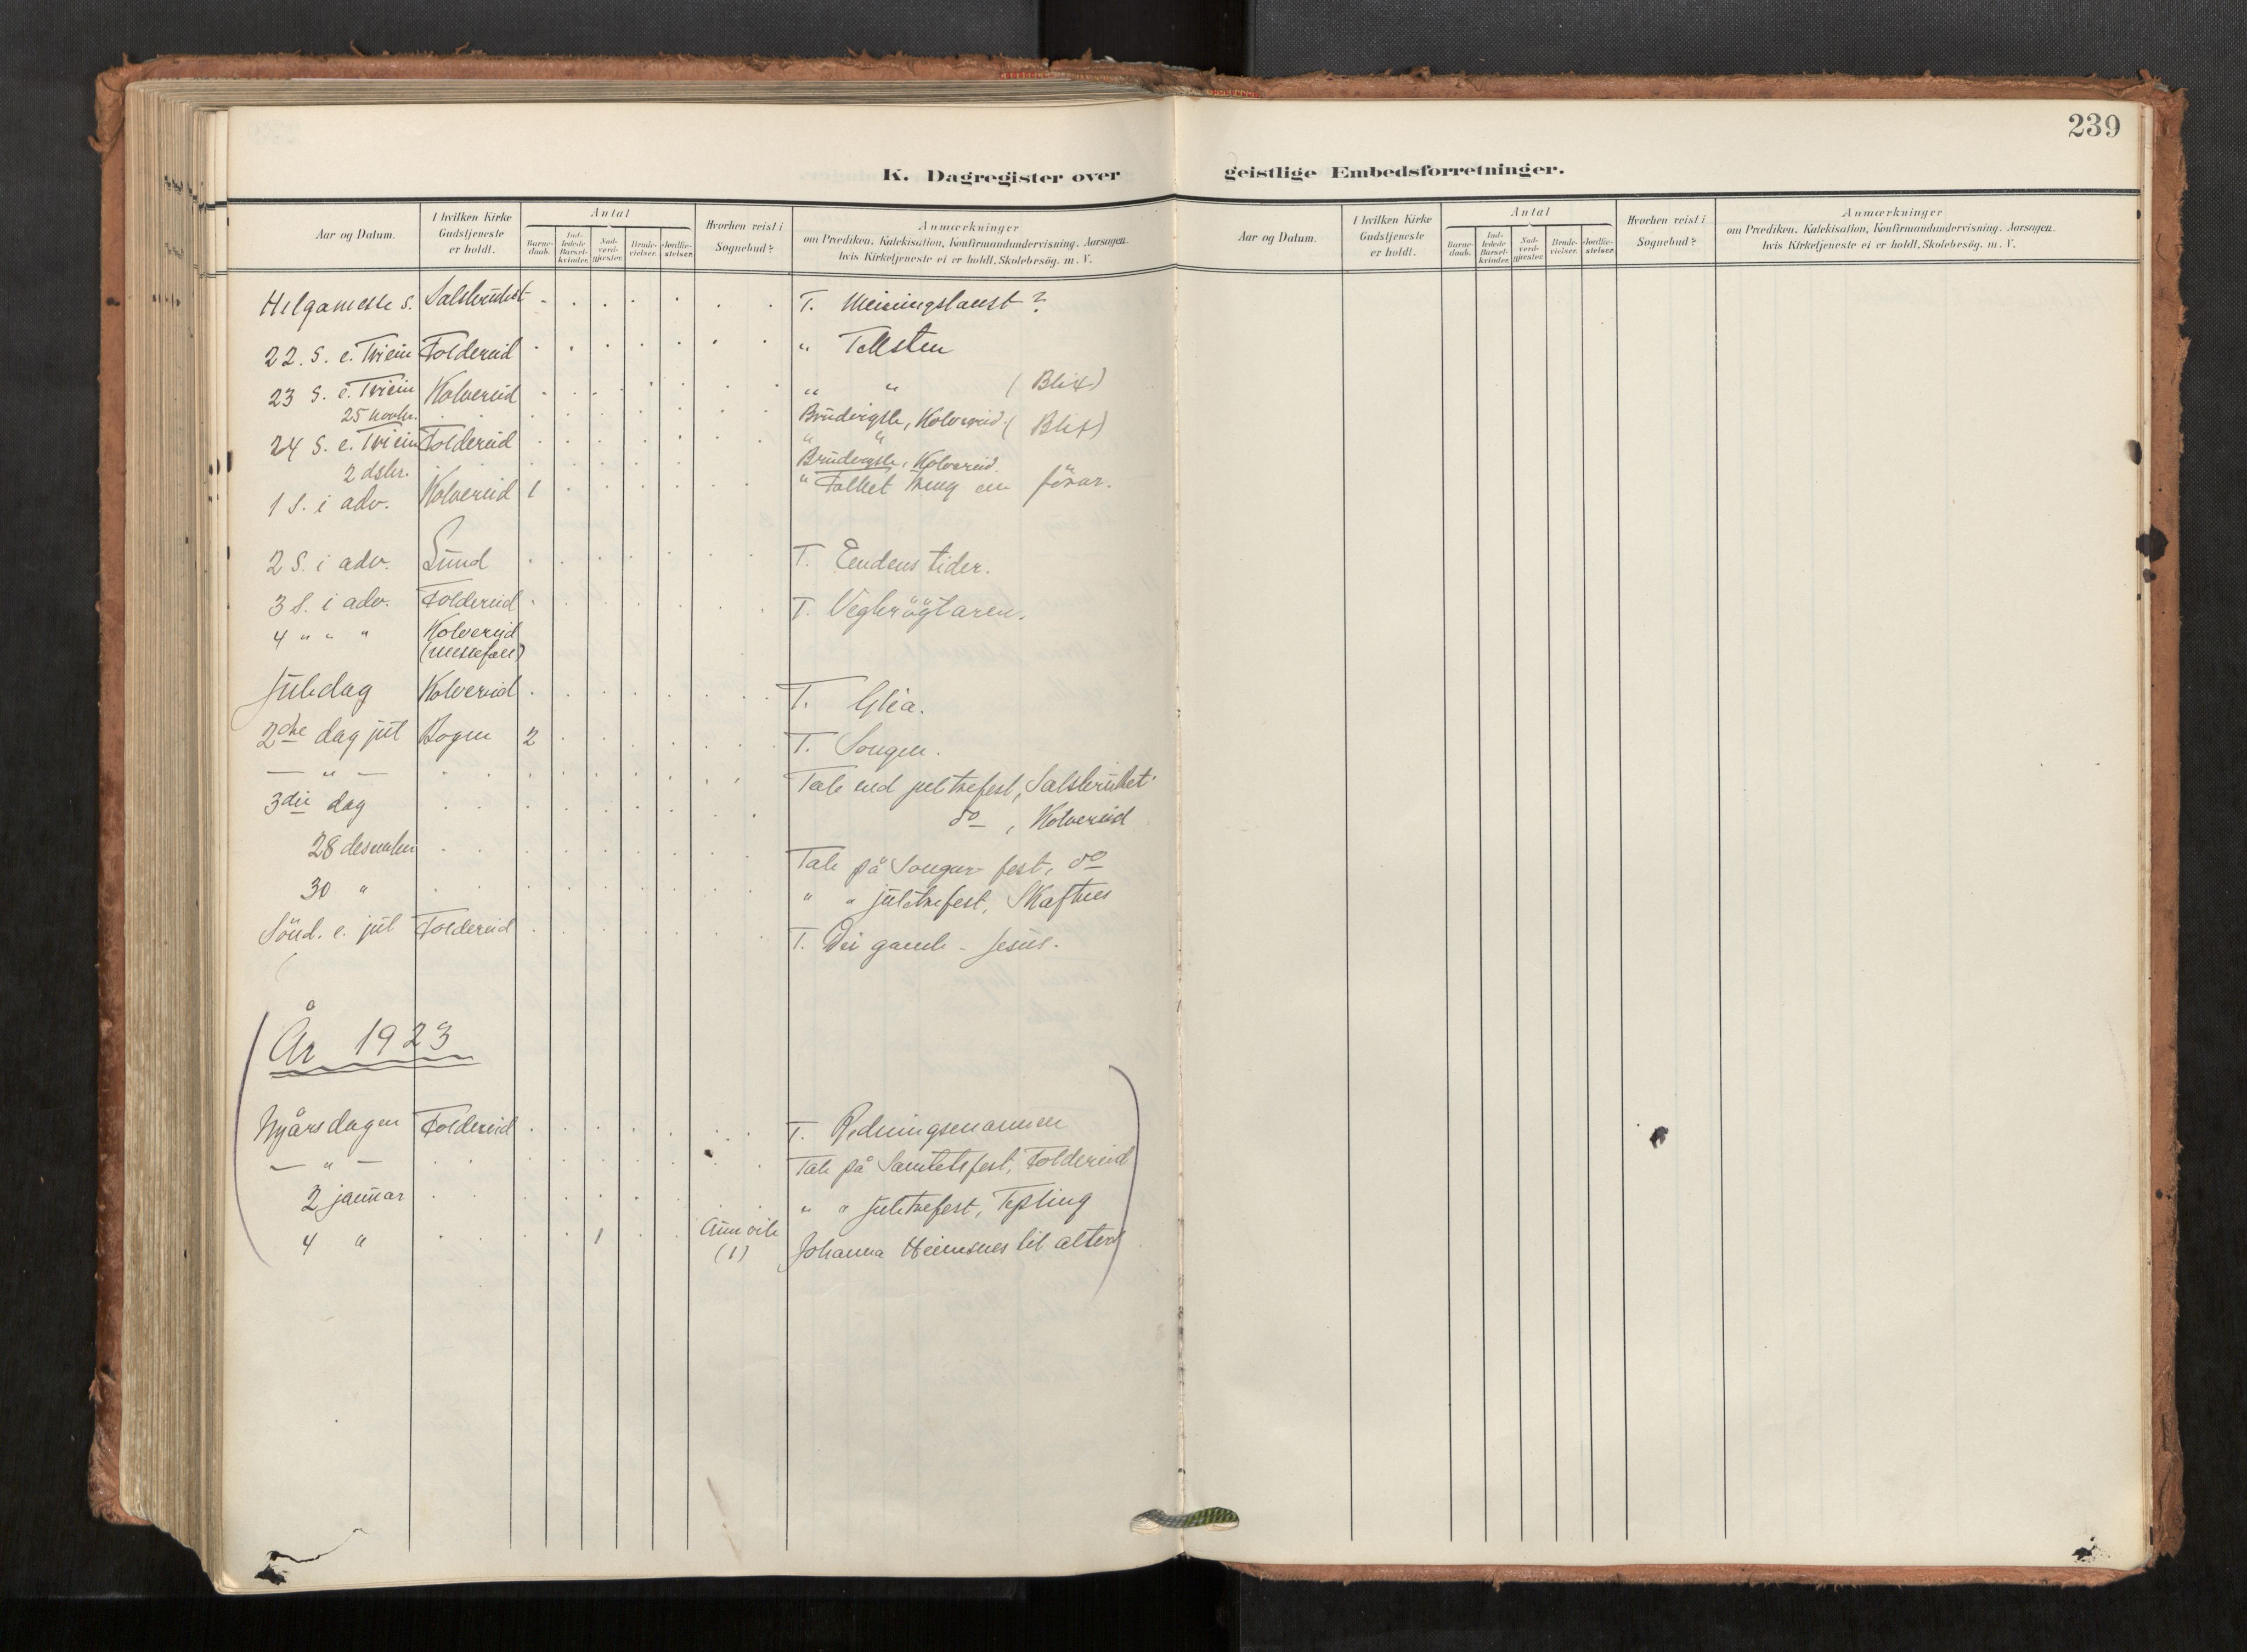 239
K. Dagregister over geistlige Embedsforretninger.
Aar og Datum. I hvilken Kirke Gudstjeneste er holdt. Antal Barnedaab. Indledede Barselkvinder. Nadverdgjester. Brudevielser. Jordfæstelser. Hvorhen reist i Sognebud? Anmærkninger om Prædiken. Katekisation, Konfirmandundervisning. Aarsagen. hvis Kirketjeneste ei er holdt, Skolebesøg. m. V.
Aar og Datum. I hvilken Kirke Gudstjeneste er holdt. Antal Barnedaab. Indledede Barselkvinder. Nadverdgjester. Brudevielser. Jordfæstelser. Hvorhen reist i Sognebud? Anmærkninger om Prædiken. Katekisation, Konfirmandundervisning. Aarsagen. hvis Kirketjeneste ei er holdt, Skolebesøg. m. V.
Helgamesse s. Salsbruket T. Meiningslaust?
22. S. e. Trein Foldereid "
23 S. e. Trein Kolvereid " " (Blix)
25 novbr. Brudvigsl., Kolvereid. (Blix)
24 S. e. Trein Foldereid " "
2 dsbr. Brudvigsl., Kolvereid.
1 S. i adv. Kolvereid 1 " Folket treng ein förar.
2 S. i adv. Lund T. Eendens tider.
3 S. i adv. Foldereid T. Vegbröytaren.
4 " " " Kolvereid
(messefall)
Juledag Kolvereid T. Glea.
2dre dag jul Bogen 2 T. Songen.
— " — Tale ved jultrefest, Salsbruket
3die dag do , Kolvereid
28 desember Tale på Songar fest, do
30 " " " juletrefest, Skafnes
Sönd. e. jul Foldereid T. Dei gamle - Jesus.
År 1923
Nyårsdagen Foldereid T. Redningsmannen
— " — Tale på Samlotsfest, Foldereid
2 januar " " juletrefest, Tepling
4 " 1 (1) Johanna Heimsnes til alters